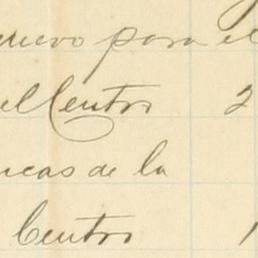 nuevo para el
el Centro 2
ncas de la
Centro 1